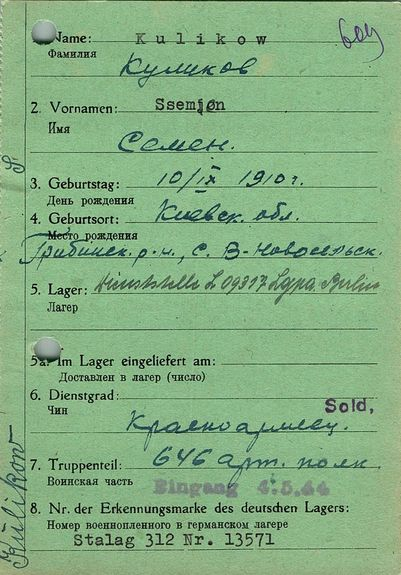 609
1. Name: Kulikow
Фамилия
Куликов
2. Vornamen: Ssemjon
Имя
Семен.
3. Geburtstag: 10/IX 1910 г.
День рождения
4. Geburtsort: Киевск. обл.
Место рождения
с. В-Новосельск.
5. Lager: Dienststelle L 09317 Berlin
Лагер
5a. Im Lager eingeliefert am:
Доставлен в лагер (число)
6. Dienstgrad: Sold,
Чин
Красноармеец.
7. Truppenteil: 646 арт. полк.
Воинская часть
Eingang 4.5.44
8. Nr. der Erkennungsmarke des deutschen Lagers:
Номер военнопленного в германском лагере
Stalag 312 Nr. 13571
Kulikow
S